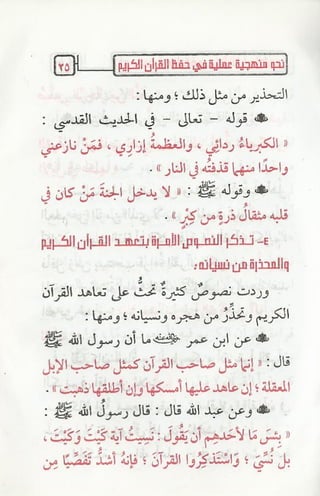 نحو منهجية عملية في حفظ القرآن الكريم
٢٥
التحذير من مثل ذلك ؛ ومنها :
قوله - تعالى - في الحديث القدسي :
« الكبرياءُ ردائي ، والعظمةُ إزاري ، فمَنْ نازعني
واحدًا منهما قذفتُه في النار » .
وقوله ﷺ : « لا يدخل الجنةَ مَنْ كان في
قلبه مثقالُ ذرةٍ من كِبْرٍ » .
٤- تذكر النصوص الآمرة بتعهد القرآن الكريم
والمحذرة من نسيانه :
وردت نصوصٌ كثيرةٌ تحثُّ على تعاهد القرآن
الكريم وتحذِّرُ من هجره ونسيانه ؛ ومنها :
عن ابن عمر أن رسول الله ﷺ
قال : « إنما مثل صاحب القرآن كمثل صاحب الإبل
المعقلة ؛ إن عاهد عليها أمسكها وإن أطلقها ذهبت » .
وعن عبد الله قال : قال رسولُ الله ﷺ :
« بِئسَ مَا لأَحَدِهِم أن يَقُولَ : نَسِيتُ آيَةَ كَيْتَ وَكَيْتَ ،
بل نُسِّيَ ؛ وَاسْتَذكِرُوا القرآنَ ؛ فإنهُ أشدُّ تَفَصِّيًا مِن